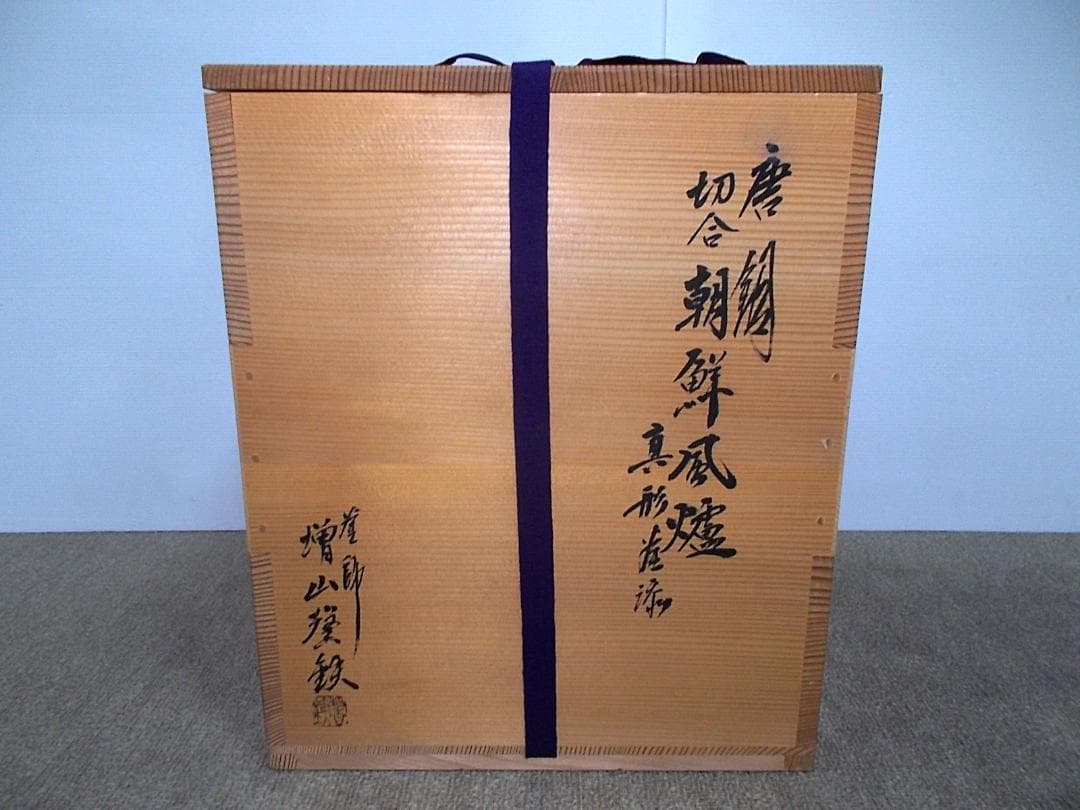 唐銅
切合朝鮮風爐
真形釜添
釜師
増山
鉄